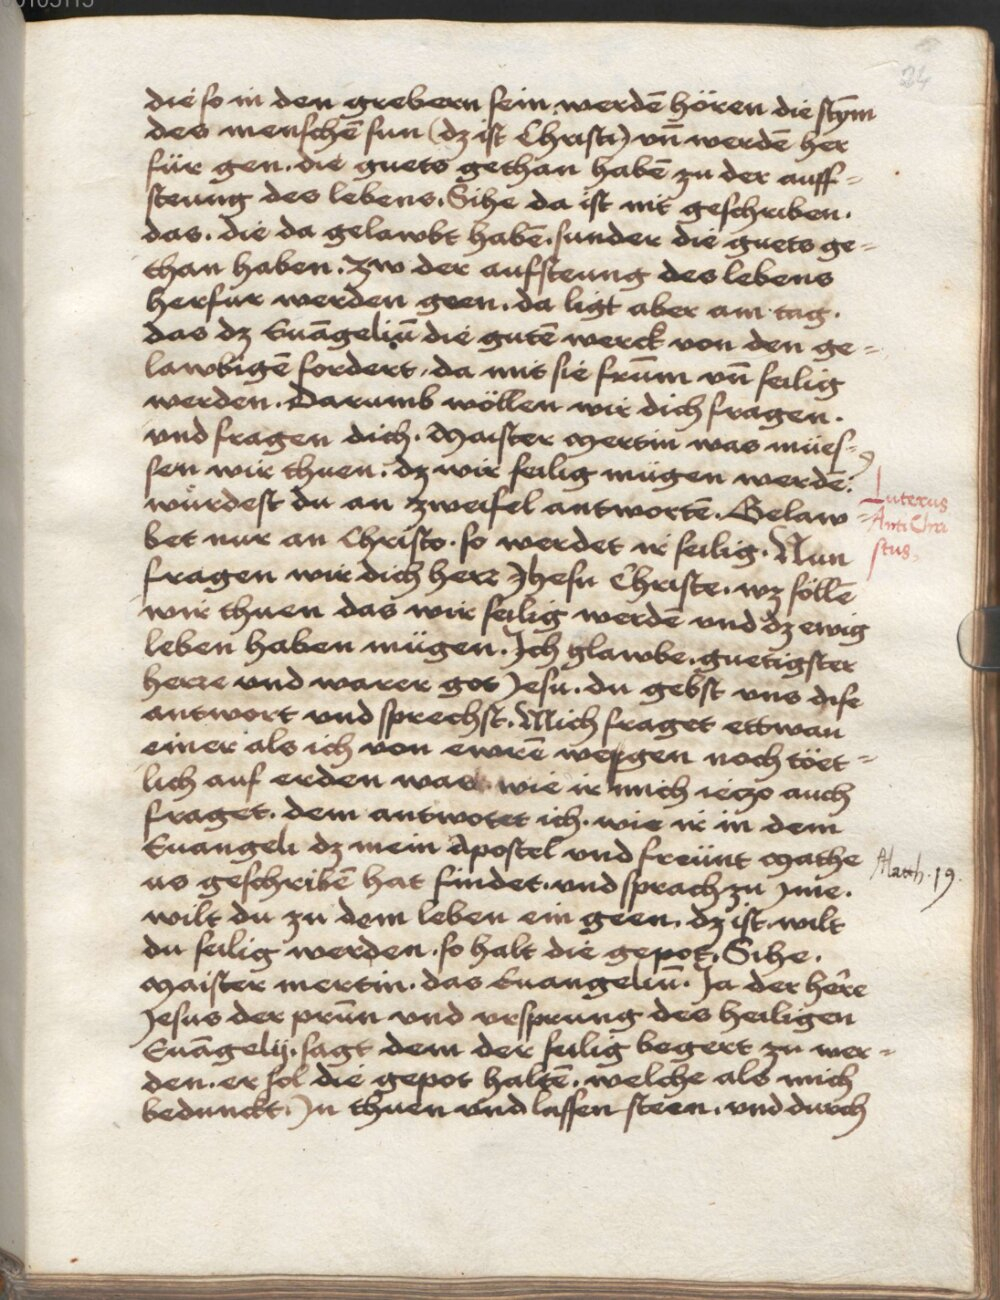 24
die so in den grebern sein werdē hören die stym
des menschē sun (dz ist Christi) vn̄ werdē her
für gen. die guets gethan habē zu der auff=
steung des lebens. Sihe da ist nit geschriben.
das. die da gelawbt habē. sunder die guets ge=
than haben. zw der aufsteung des lebens
herfur werden geen. da ligt aber am tag.
das dz Euāgeliū die gutē werck von den ge=
lawbigē fordert. da mit sie frūm vn̄ selig
werden. Darumb wöllen wir dich fragen.
vnd fragen dich. Maister Mertin was mües=
sen wir thuen. dz wir selig mügen werdē.
würdest du an zweifel antwortē. Gelaw=
bet nur an Christo. so werdet ir selig. Nun
fragen wir dich herr Jhesu Christe. wz söllē
wir thuen das wir selig werdē vnd dz ewig
leben haben mügen. Ich glawbe. guetigster
herre vnd warer got Jesu. du gebst vns dise
antwort vnd sprechst. Mich fraget ettwan
einer als ich von ewrē wegen noch töet=
lich auf erden was. wie ir mich ieczo auch
fraget. dem antwotet ich. wie ir in dem
Euangeli dz mein Apostel vnd freünt Mathe
us geschribē hat findet. vnd sprach zu Jme.
wilt du zu dem leben ein geen. dz ist. wilt
du selig werden. so halt die gepot. Sihe.
Maister mertin. das Euangeliū. Ja der hēre
Jesus der prūn vnd vrsprung des heiligen
Euāgelij. sagt dem der selig begert zu wer=
den. er sol die gepot haltē. welche als mich
bedunckt. Jn thuen vnd lassen steen. vnd durch
Luterus
AntiChri
stus.
Matth. 19.